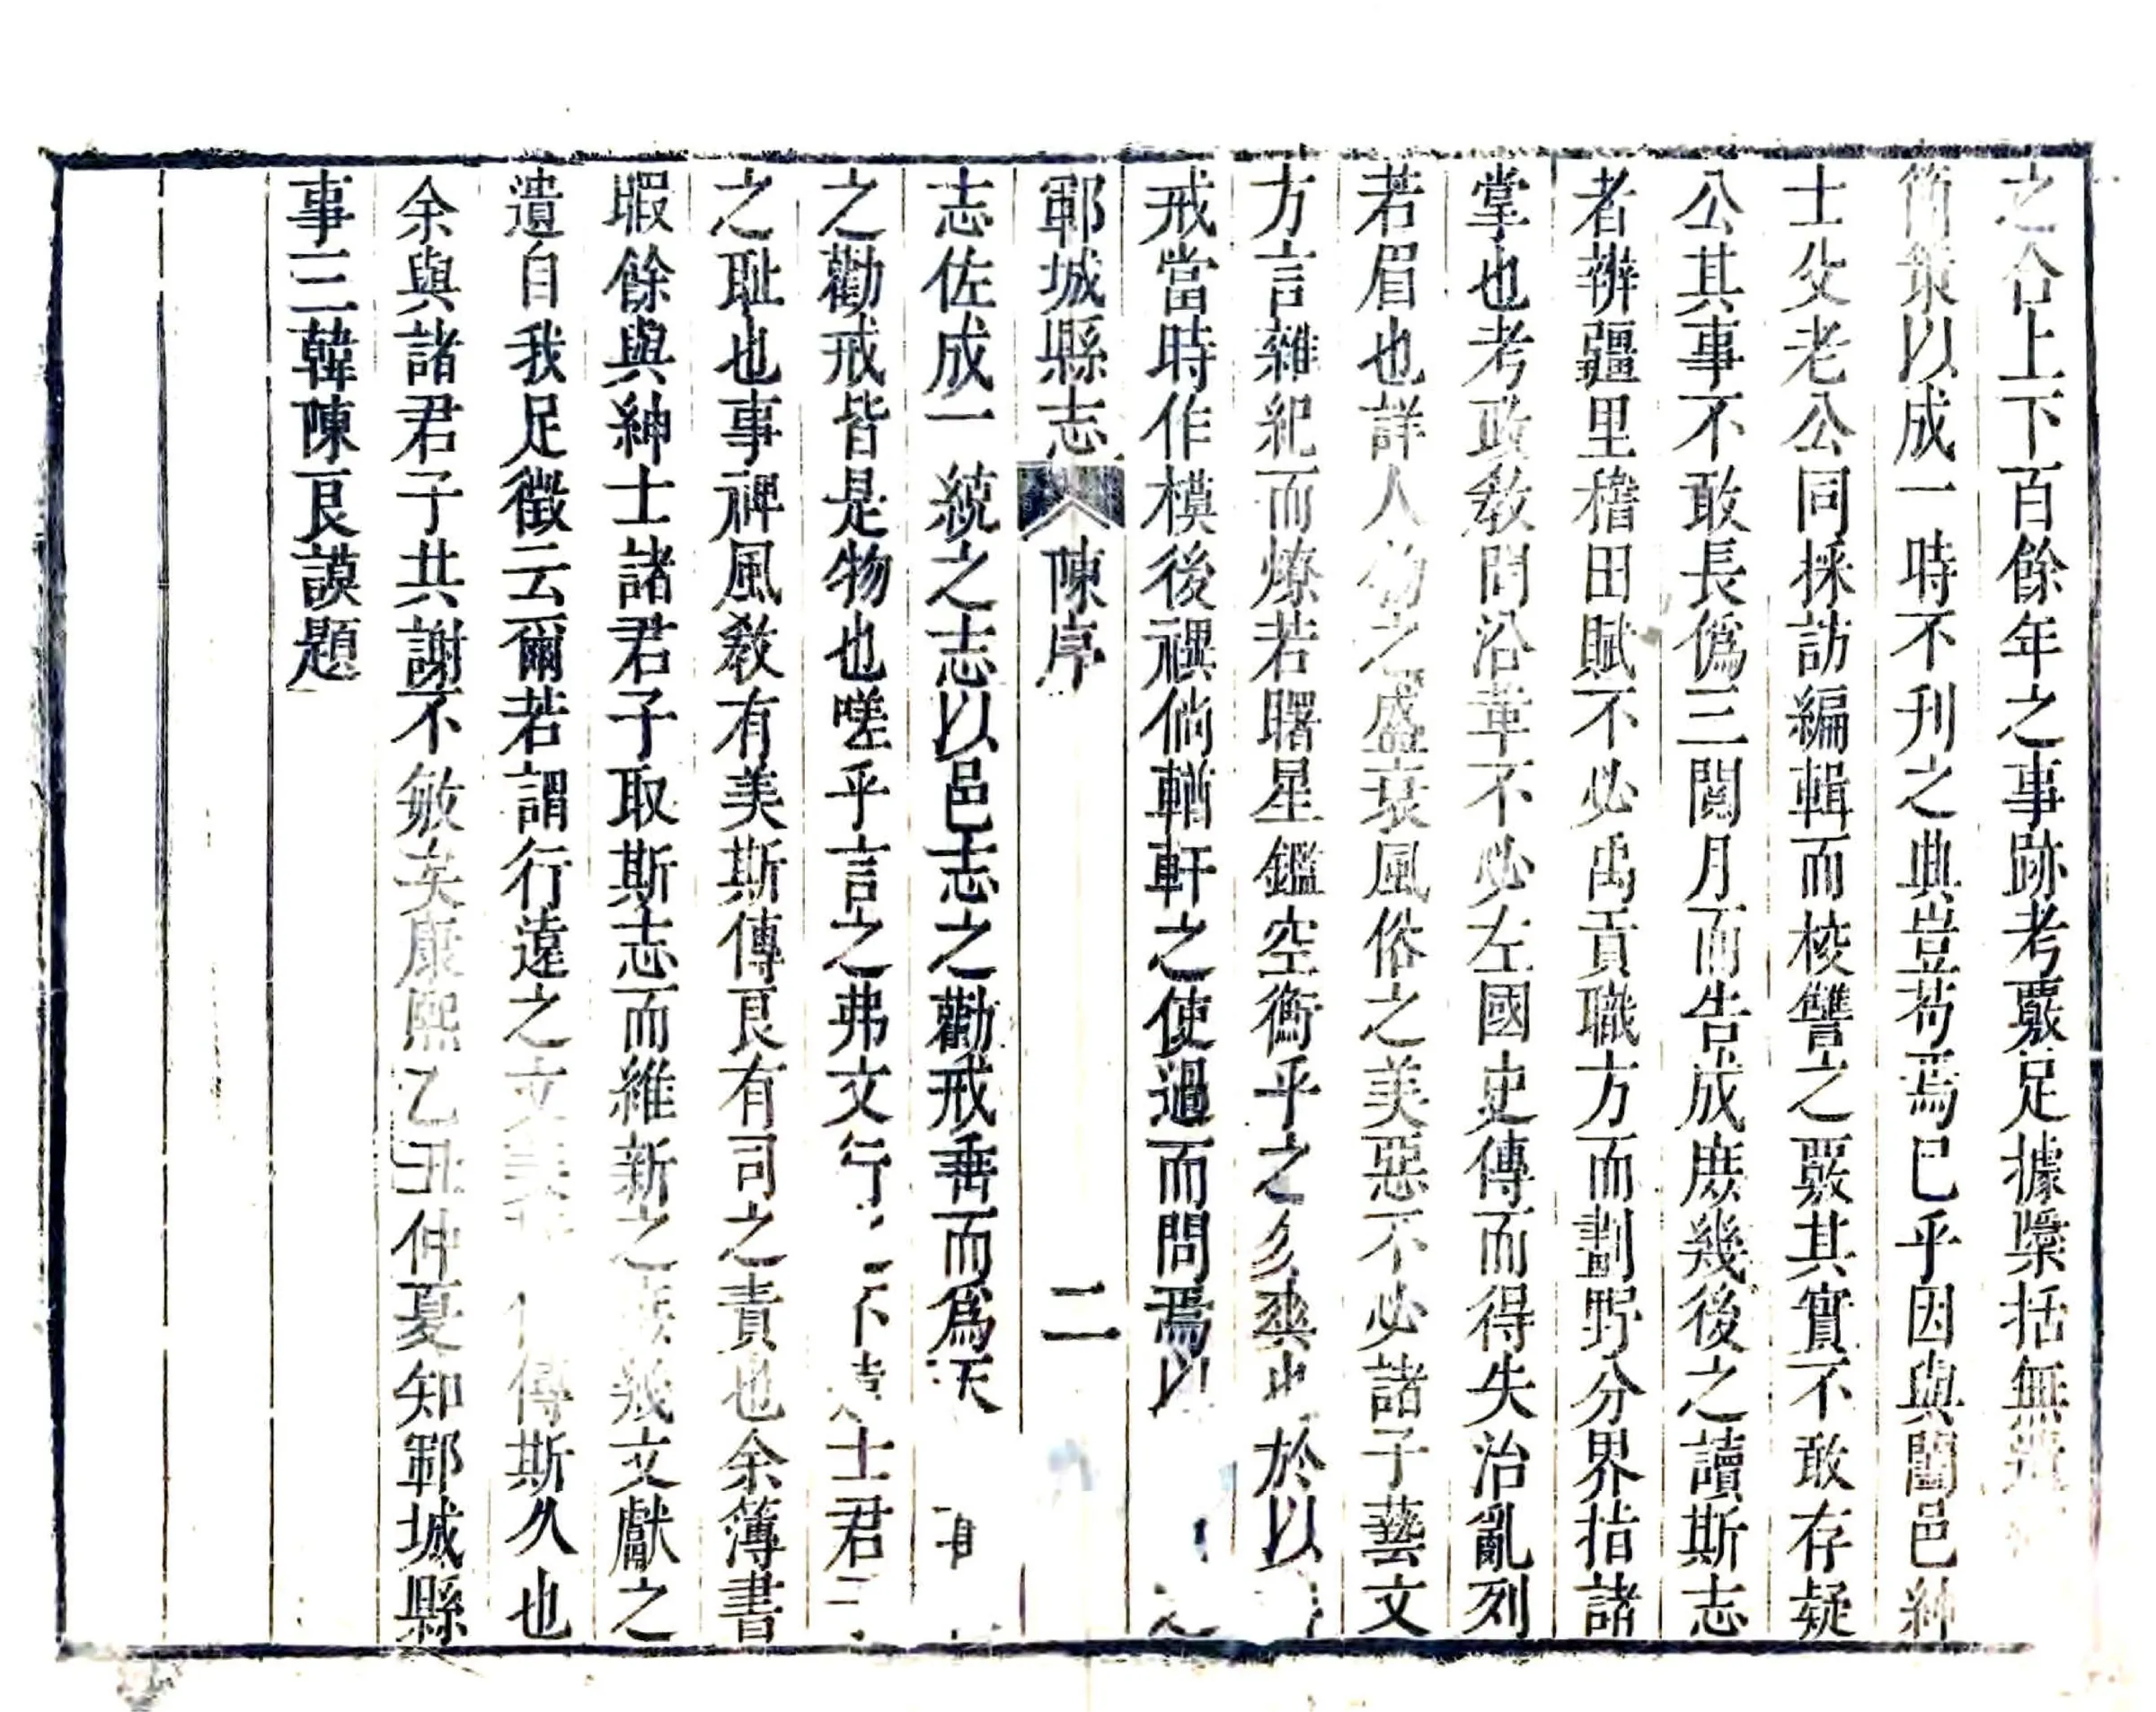 之合上下百餘年之事跡考覈足據檃括無遺
簡策以成一時不刊之典豈苟焉已乎因與闔邑紳
士父老公同採訪編輯而校讐之覈其實不敢存疑
公其事不敢長僞三閱月而告成庶幾後之讀斯志
者辨疆里稽田賦不必禹貢職方而劃野分界指諸
掌也考政教問沿革不必左國史傳而得失治亂列
若眉也詳人物之盛衰風俗之美惡不必諸子藝文
方言雜紀而燎若曙星鑑空衡乎之於以
戒當時作模後禩倘輶軒之使過而問焉以
鄆城縣志 陳序 二
志佐成一統之志以邑志之勸戒垂而爲天
之勸戒皆是物也嗟乎言之弗文行之不遠士君
之耻也事禆風教有美斯傳良有司之責也余簿書
暇餘與紳士諸君子取斯志而維新之庶幾文獻之
遺自我足徵云爾若謂行遠之文美傳斯久也
余與諸君子共謝不敏矣康熙乙丑仲夏知鄆城縣
事三韓陳良謨題